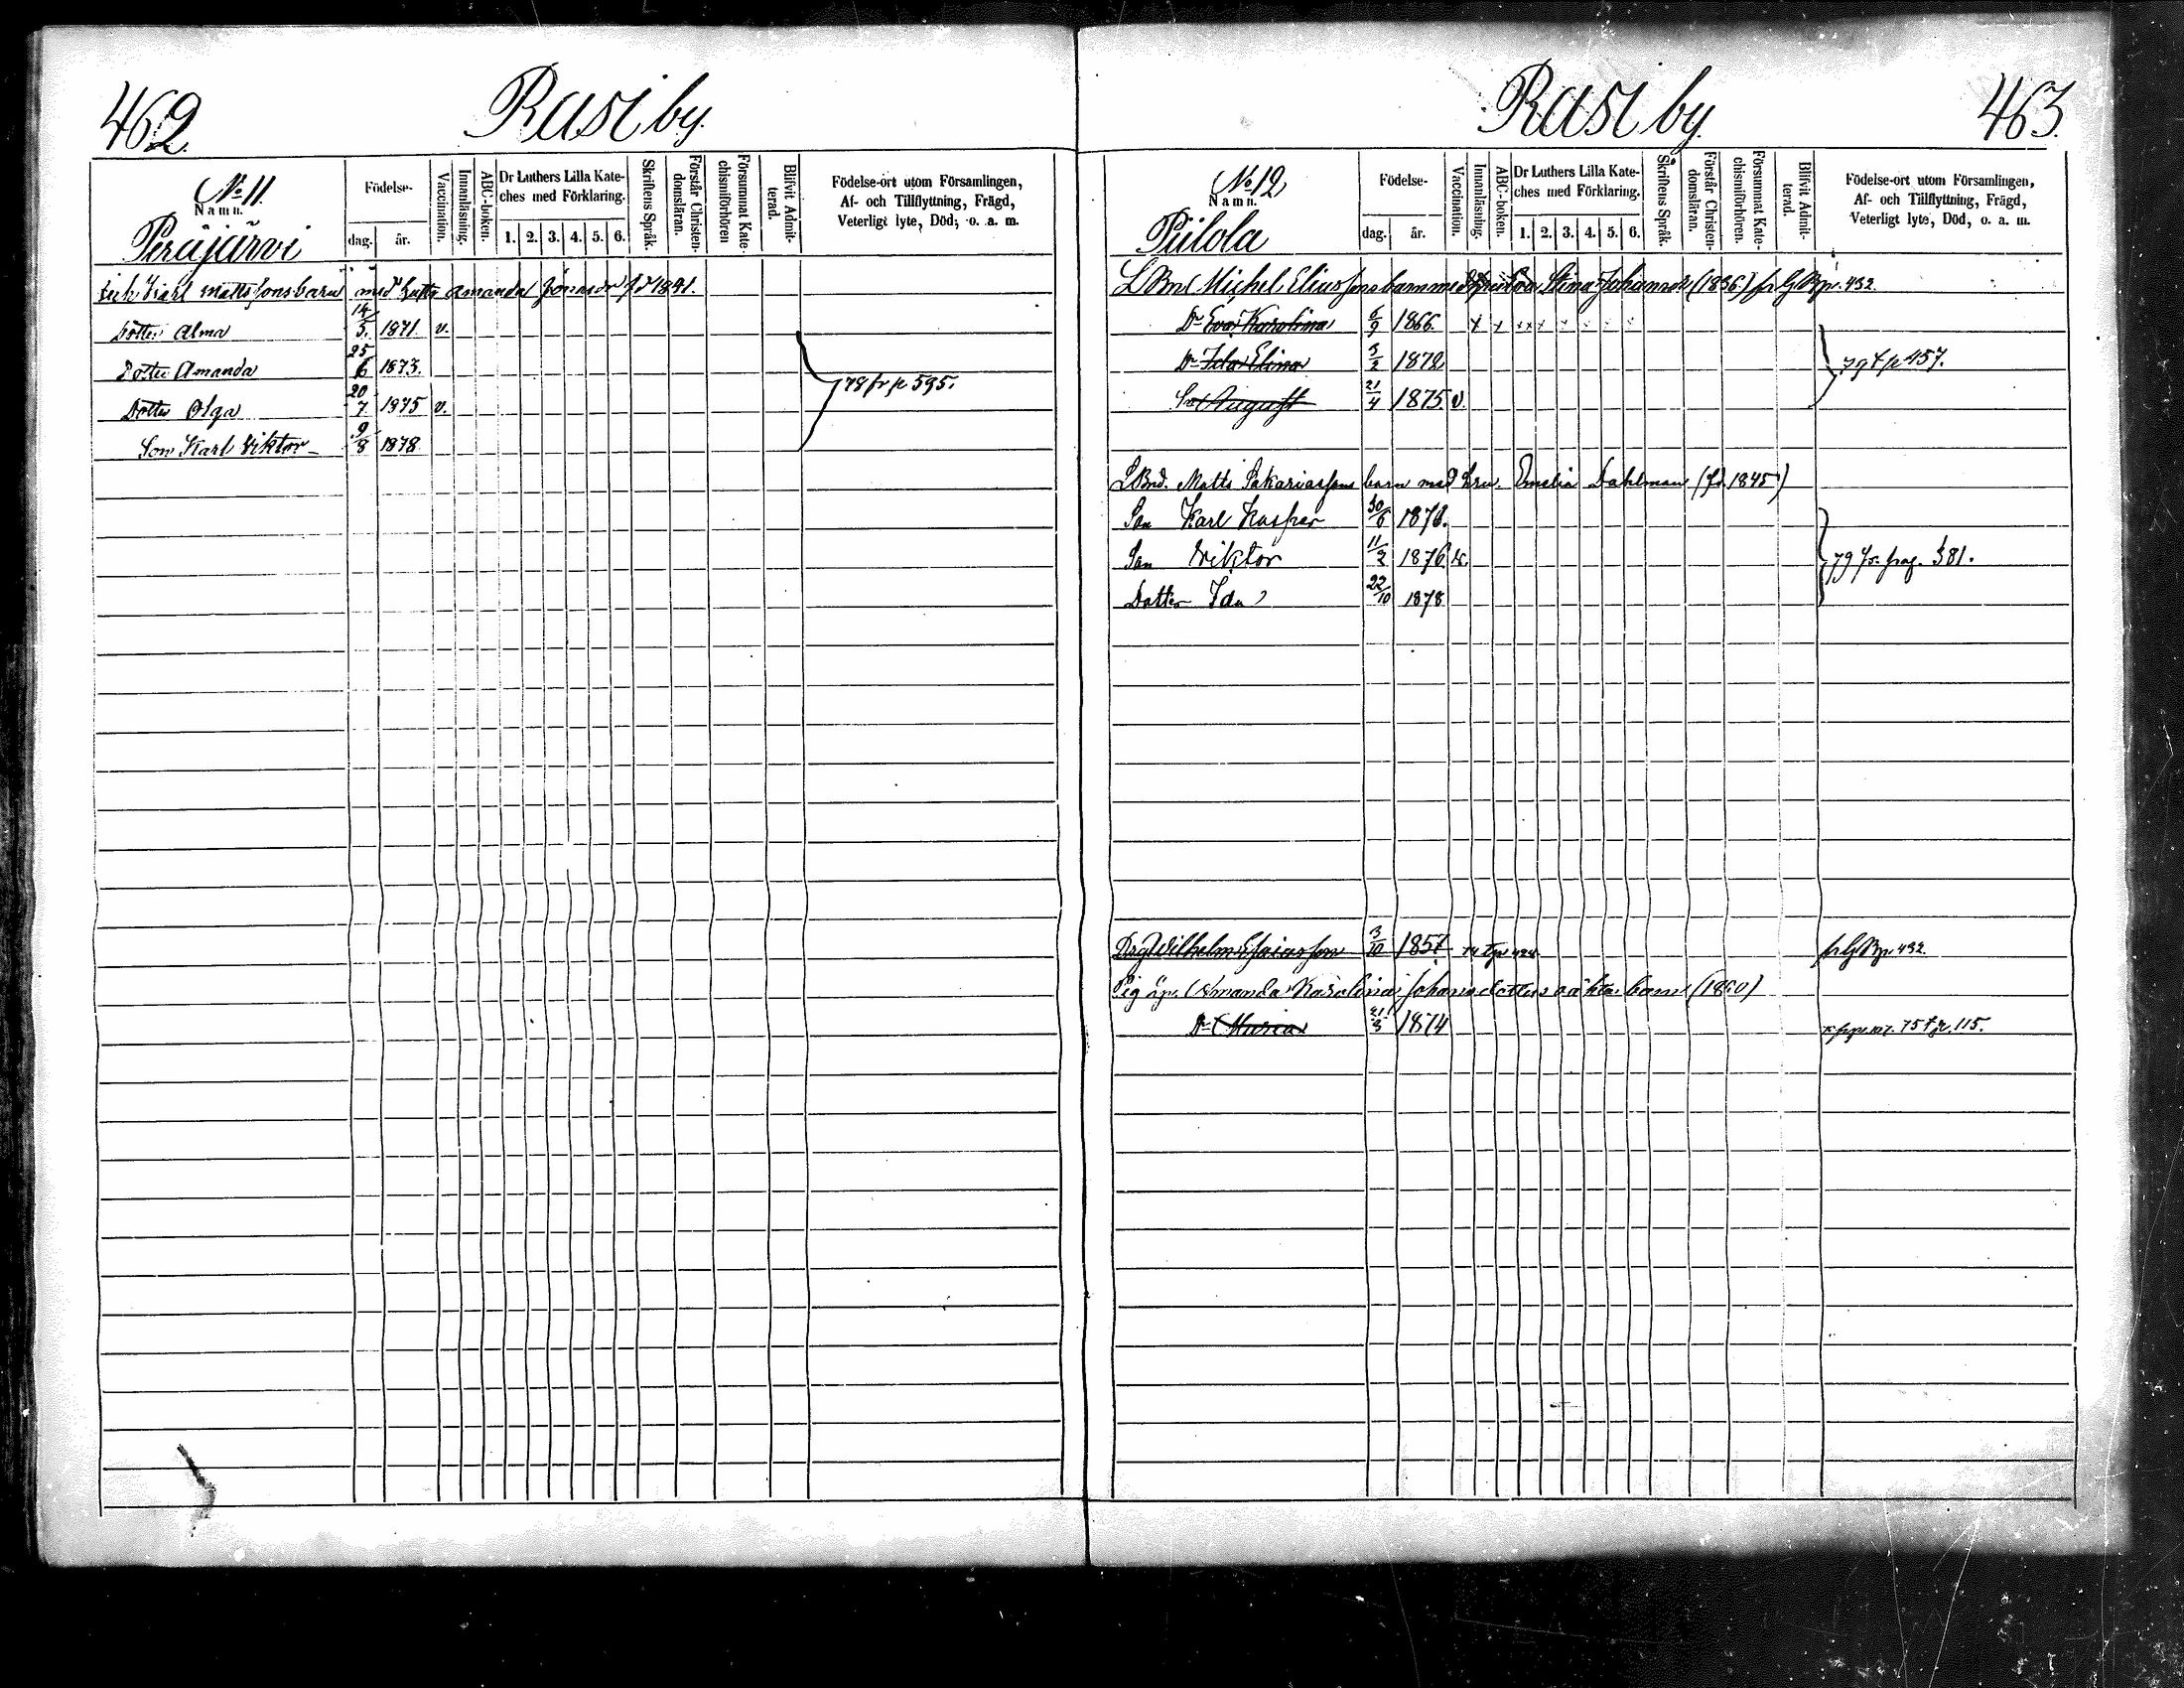 462 Rasi by.
No 11.
Namn.
Peräjärvi
Födelse-
dag. år.
Vaccination.
Innanläsning.
ABC-boken.
Dr Luthers Lilla Kate-
ches med Förklaring.
1. 2. 3. 4. 5. 6.
Skriftens Språk.
Förstår Christen-
domsläran.
Försummat Kate-
chismiförhören
Blifvit Admit-
terad.
Födelse-ort utom Församlingen,
Af- och Tillflyttning, Frägd,
Veterligt lyte, Död, o. a. m.
Karl Mattssons barn med Amanda
Dotter Alma 14/5. 1871. v.
Dotter Amanda 25/6 1873.
Dotter Olga 20/7 1875 v.
78 fr p 595.
Son Karl Viktor 9/8 1878.
Rasi by. 463.
No 12
Namn.
Piilola
Födelse-
dag. år.
Vaccination.
Innanläsning.
ABC-boken.
Dr Luthers Lilla Kate-
ches med Förklaring.
1. 2. 3. 4. 5. 6.
Skriftens Språk.
Förstår Christen-
domsläran.
Försummat Kate-
chismiförhören.
Blifvit Admit-
terad.
Födelse-ort utom Församlingen,
Af- och Tillflyttning, Frägd,
Veterligt lyte, Död, o. a. m.
Michel Eliassons barn med Stina (1836)
Dr Eva Karolina 6/9 1866.
Dr Ida Elina 5/2 1872
79 t p 457.
Sn August 21/4 1875. v.
LBnd. Matts Sakariassons barn med Amalia Dahlman (fd. 1845)
Son Karl Kasper 30/6 187
Son Viktor 11/2 1876. v.
79 fr. pag. 381.
Dotter Ida 22/10 1878
Drg Wilhelm 3/10 1857
Amanda Karolina Johansdotters oäkta barn
Dr Maria 1874 75 t p. 115.